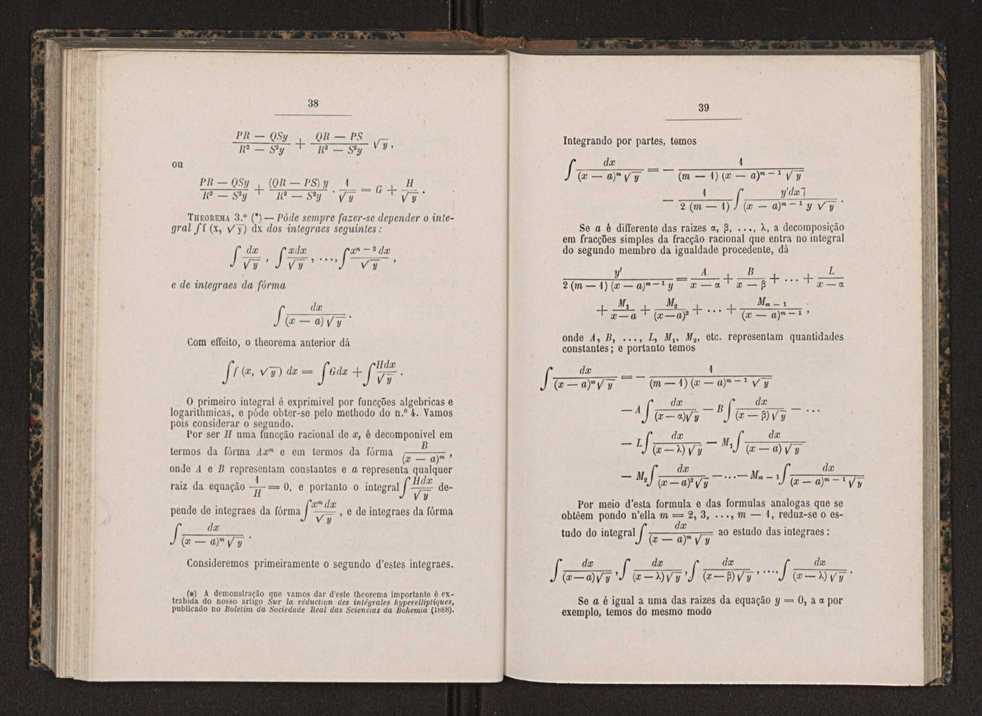 38
PR — QSy / R² — S²y + QR — PS / R² — S²y √y,
ou
PR — QSy / R² — S²y + (QR — PS) y / R² — S²y · 1 / √y = G + H / √y .
THEOREMA 3.º (*) — Póde sempre fazer-se depender o inte-
gral ∫f (x, √y) dx dos integraes seguintes:
∫ dx / √y , ∫ xdx / √y , ..., ∫ xⁿ⁻² dx / √y ,
e de integraes da fórma
∫ dx / (x — a) √y .
Com effeito, o theorema anterior dá
∫ f (x, √y) dx = ∫ Gdx + ∫ Hdx / √y .
O primeiro integral é exprimivel por funcções algebricas e
logarithmicas, e póde obter-se pelo methodo do n.º 4. Vamos
pois considerar o segundo.
Por ser H uma funcção racional de x, é decomponivel em
termos da fórma Axᵐ e em termos da fórma B / (x — a)ᵐ ,
onde A e B representam constantes e a representa qualquer
raiz da equação 1 / H = 0, e portanto o integral ∫ Hdx / √y de-
pende de integraes da fórma ∫ xᵐ dx / √y , e de integraes da fórma
∫ dx / (x — a)ᵐ √y .
Consideremos primeiramente o segundo d'estes integraes.
(*) A demonstração que vamos dar d'este theorema importante é ex-
trahida do nosso artigo Sur la réduction des intégrales hyperelliptiques,
publicado no Boletim da Sociedade Real das Sciencias da Bohemia (1888).
39
Integrando por partes, temos
∫ dx / (x — a)ᵐ √y = — 1 / (m — 1) (x — a)ᵐ⁻¹ √y
— 1 / 2 (m — 1) ∫ y'dx / (x — a)ᵐ⁻¹ y √y .
Se a é differente das raizes α, β, ..., λ, a decomposição
em fracções simples da fracção racional que entra no integral
do segundo membro da igualdade procedente, dá
y' / 2 (m — 1) (x — a)ᵐ⁻¹ y = A / x — α + B / x — β + ... + L / x — α
+ M₁ / x — a + M₂ / (x — a)² + ... + Mₘ₋₁ / (x — a)ᵐ⁻¹ ,
onde A, B, ..., L, M₁, M₂, etc. representam quantidades
constantes; e portanto temos
∫ dx / (x — a)ᵐ √y = — 1 / (m — 1) (x — a)ᵐ⁻¹ √y
— A ∫ dx / (x — α) √y — B ∫ dx / (x — β) √y — ...
— L ∫ dx / (x — λ) √y — M₁ ∫ dx / (x — a) √y
— M₂ ∫ dx / (x — a)² √y — ... — Mₘ₋₁ ∫ dx / (x — a)ᵐ⁻¹ √y
Por meio d'esta formula e das formulas analogas que se
obtêem pondo n'ella m = 2, 3, ..., m — 1, reduz-se o es-
tudo do integral ∫ dx / (x — a)ᵐ √y ao estudo das integraes:
∫ dx / (x — a) √y , ∫ dx / (x — λ) √y , ∫ dx / (x — β) √y , ..., ∫ dx / (x — λ) √y .
Se a é igual a uma das raizes da equação y = 0, a α por
exemplo, temos do mesmo modo